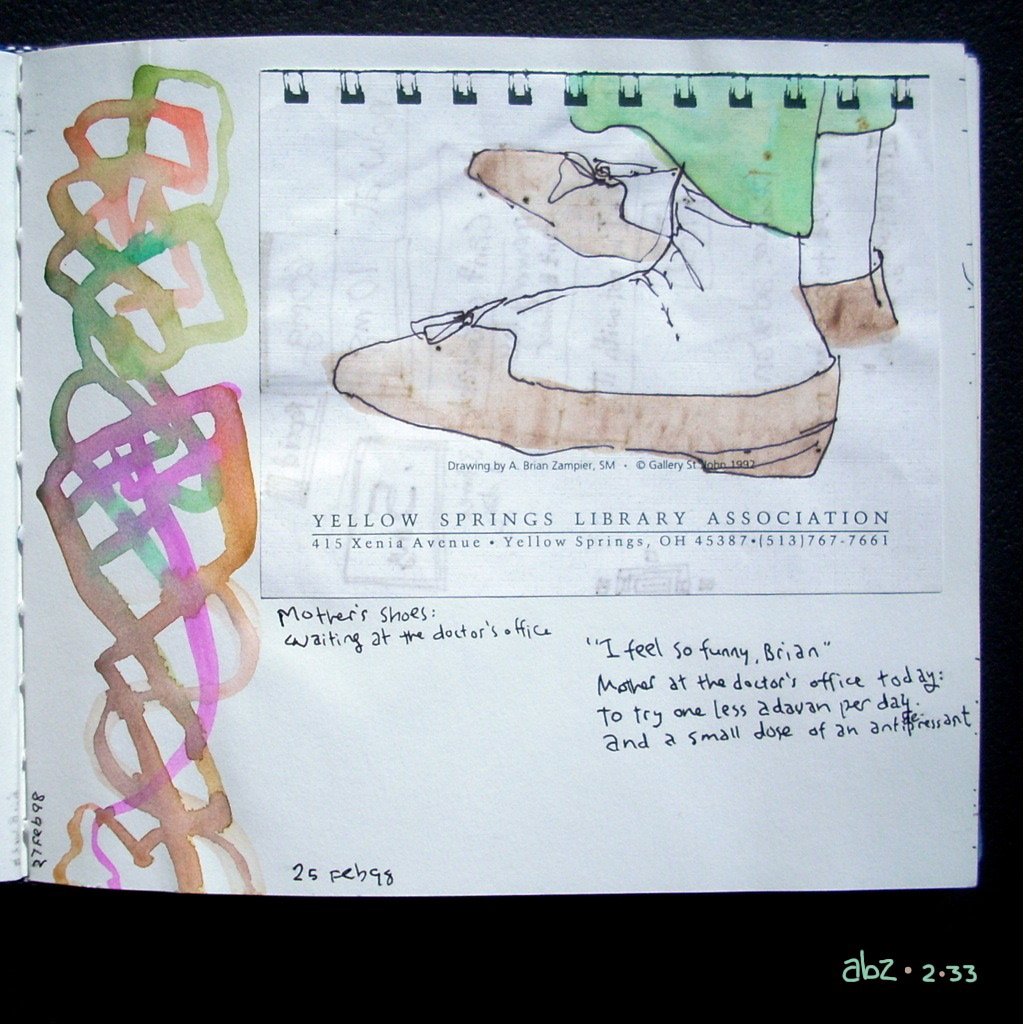 Drawing by A. Brian Zampier, SM • © Gallery St. John 1992
YELLOW SPRINGS LIBRARY ASSOCIATION
415 Xenia Avenue • Yellow Springs, OH 45387•(513)767-7661
Mother's shoes:
waiting at the doctor's office
"I feel so funny, Brian"
Mother at the doctor's office today:
to try one less adavan per day.
and a small dose of an antidepressant
27 Feb 98
25 Feb 98
abz • 2•33